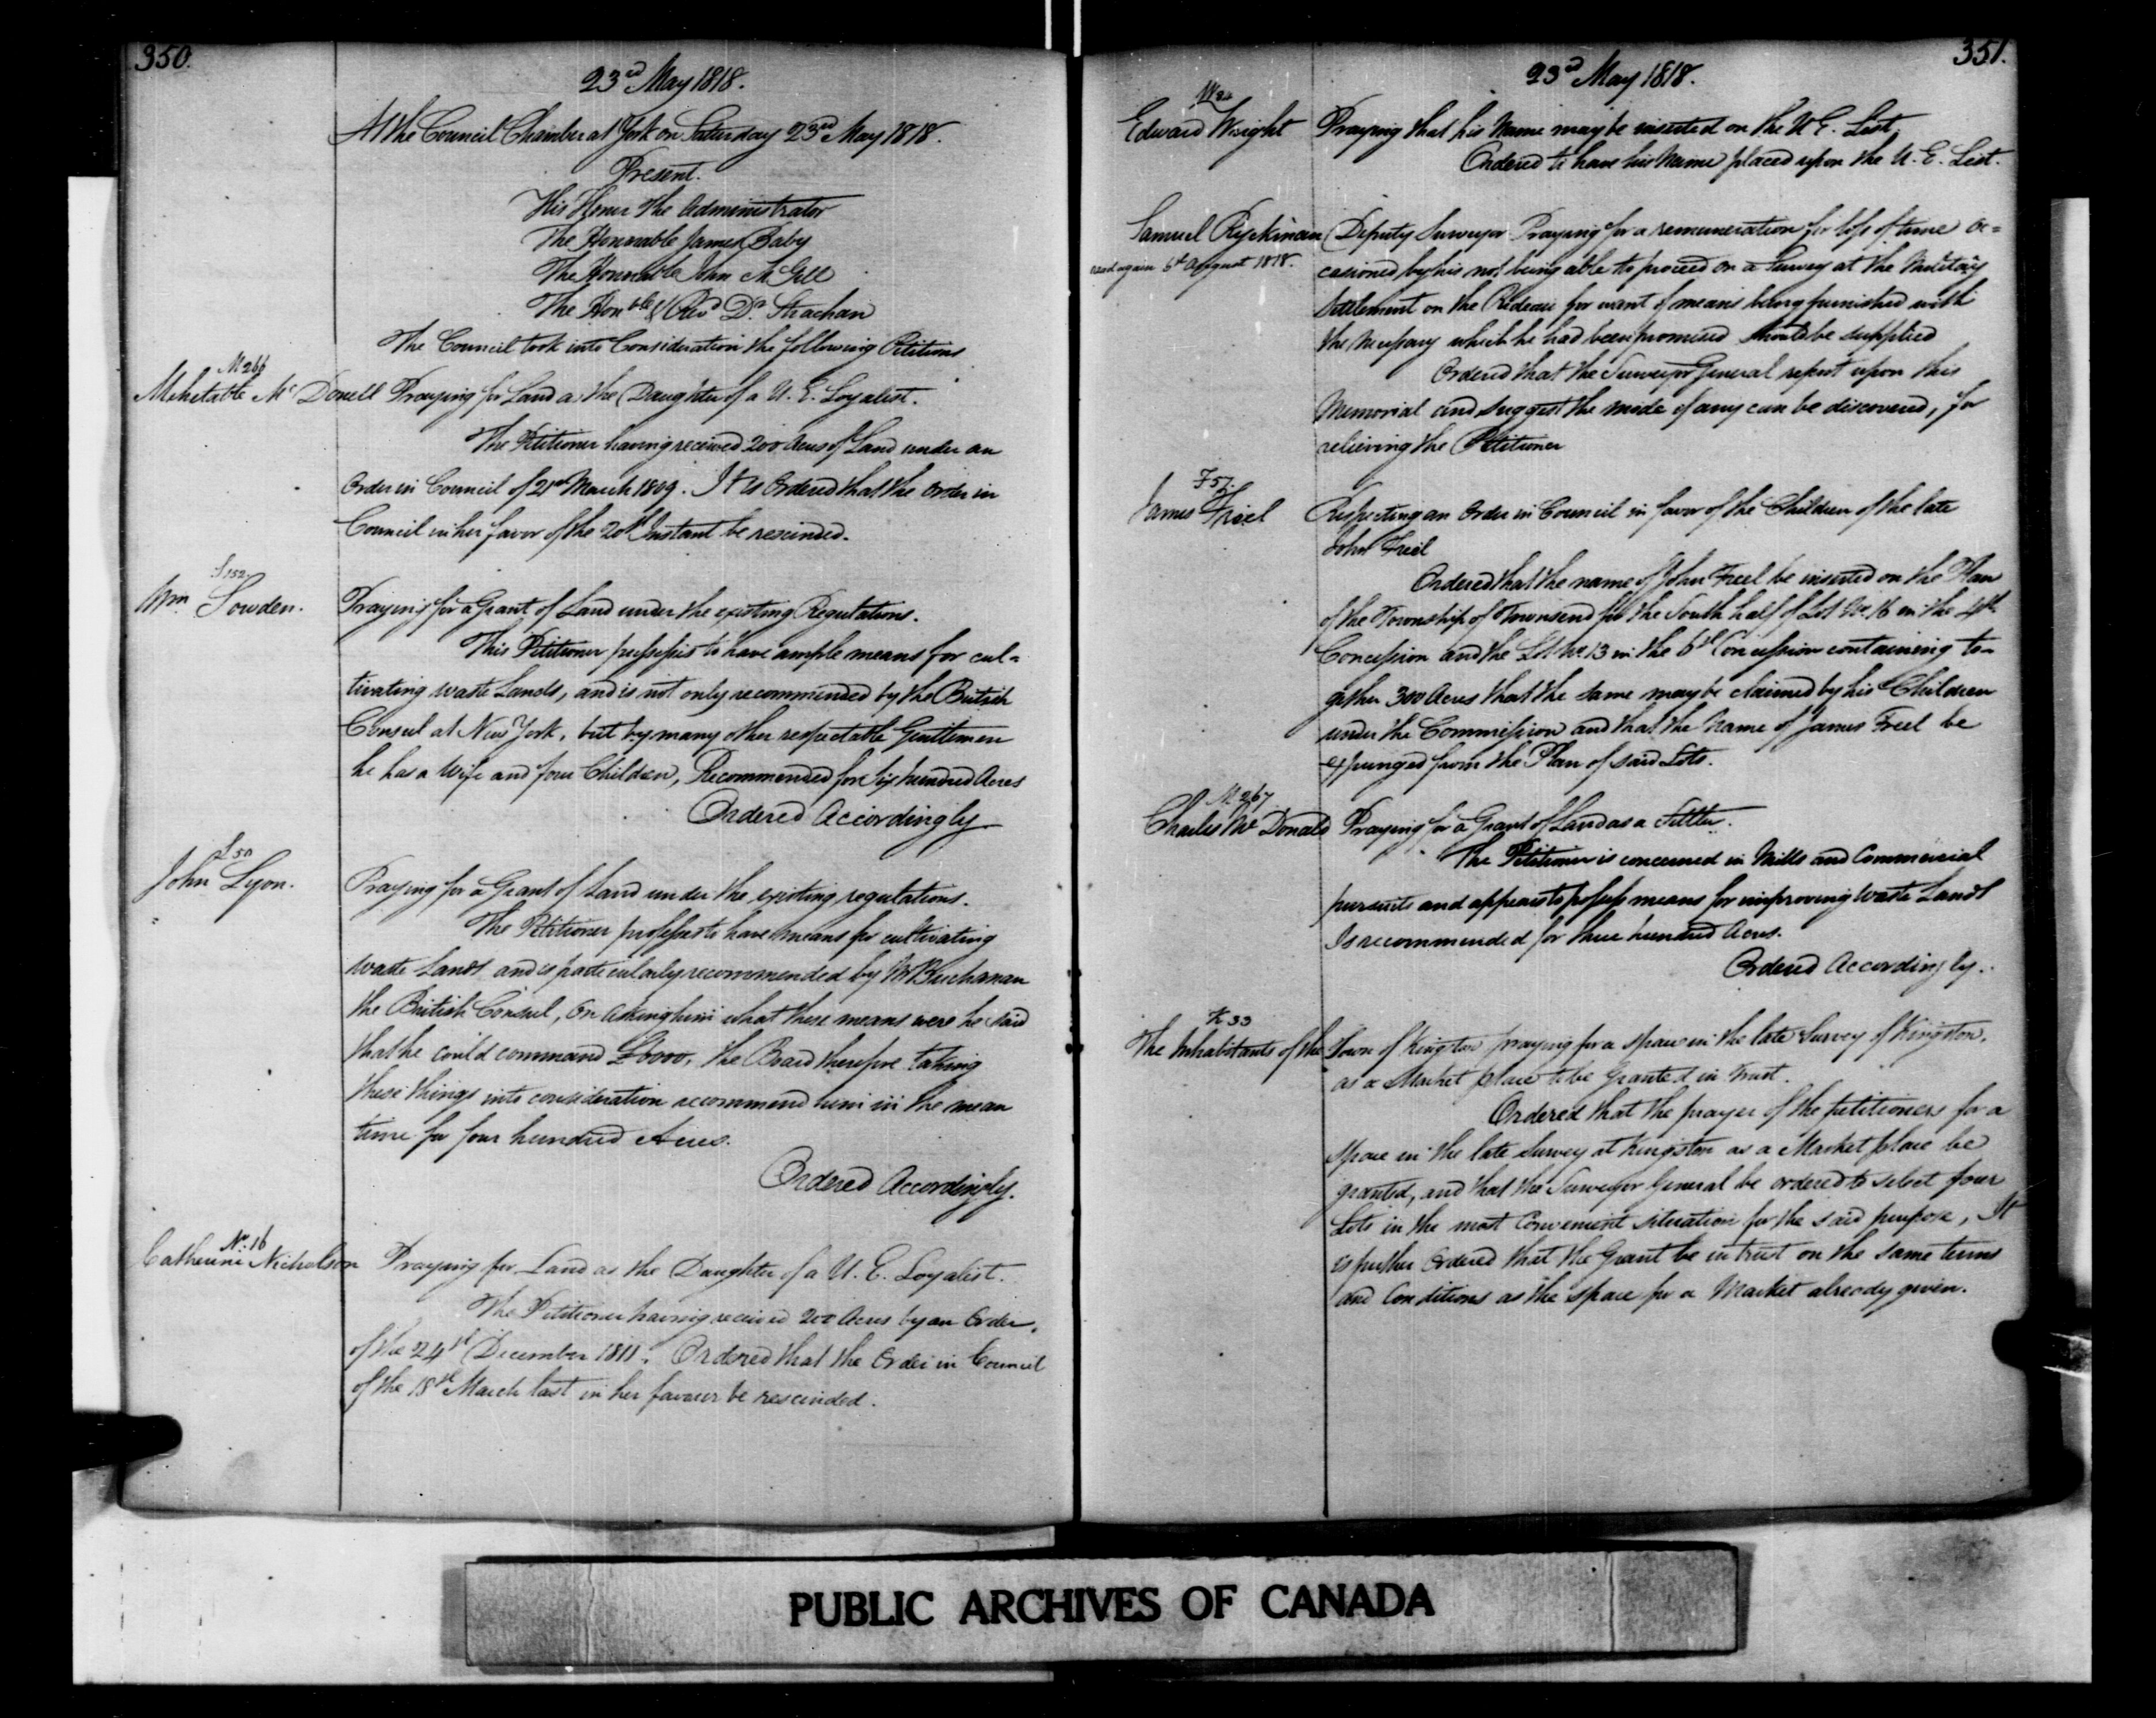 350.
23rd May 1818.
At the Council Chamber at York on Saturday 23rd May 1818.
Present.
His Honor the Administrator
The Honorable James Baby
The Honorable John McGill
The Honble & Revd Dr. Strachan
The Council took into Consideration the following Petitions
M 266
Mehetable McDonell Praying for Land as the Daughter of a U. E. Loyalist.
The Petitioner having received 200 Acres of Land under an
Order in Council of 21st March 1809. It is Ordered that the Order in
Council in her favor of the 20th Instant be rescinded.
S 152.
Wm Sowden. Praying for a Grant of Land under the existing Regulations.
This Petitioner professes to have ample means for cul-
tivating waste Lands, and is not only recommended by the British
Consul at New York, but by many other respectable Gentlemen
he has a Wife and four Children, Recommended for six hundred Acres
Ordered Accordingly
L 50
John Lyon. Praying for a Grant of Land under the existing regulations.
The Petitioner professes to have means for cultivating
waste Lands and is particularly recommended by Mr Buchanan
the British Consul, On asking him what these means were he said
that he could command £6000, the Board therefore taking
these things into consideration recommend him in the mean
time for four hundred Acres.
Ordered Accordingly.
No. 16
Catherine Nicholson Praying for Land as the Daughter of a U. E. Loyalist.
The Petitioner having received 200 Acres by an Order,
of the 24th December 1811. Ordered that the Order in Council
of the 18th March last in her favour be rescinded.
351.
23rd May 1818.
Edward Wright Praying that his Name may be inserted on the U E. List.
Ordered to have his Name placed upon the U. E. List.
Samuel Ryckman Deputy Surveyor Praying for a remuneration for loss of time oc=
read again 6th August 1818. casioned by his not being able to proceed on a Survey at the Military
Settlement on the Rideau for want of means being furnished with
the necessary which he had been promised should be supplied
Ordered that the Surveyor General report upon this
Memorial and suggest the mode if any can be discovered, for
relieving the Petitioner
F 57.
James Friel Respecting an Order in Council in favor of the Children of the late
John Freel
Ordered that the name of John Freel be inserted on the Plan
of the Township of Townsend for the South half of Lot No. 16 in the 4th
Concession and the Lot No. 13 in the 6th Concession containing to-
gether 300 Acres that the same may be claimed by his Children
under the Commission and that the Name of James Freel be
expunged from the Plan of said Lots.
M 267
Charles McDonald Praying for a Grant of Land as a Settler.
The Petitioner is concerned in Mills and Commercial
pursuits and appears to possess means for improving waste Lands
Is recommended for three hundred Acres.
Ordered Accordingly.
K 33
The Inhabitants of the Town of Kingston praying for a space in the late Survey of Kingston,
as a Market place to be Granted in Trust.
Ordered that the prayer of the petitioners for a
space in the late Survey at Kingston as a Market place be
granted, and that the Surveyor General be ordered to select four
Lots in the most Convenient situation for the said purpose, It
is further Ordered that the Grant be in trust on the same terms
and Conditions as the space for a Market already given.
PUBLIC ARCHIVES OF CANADA